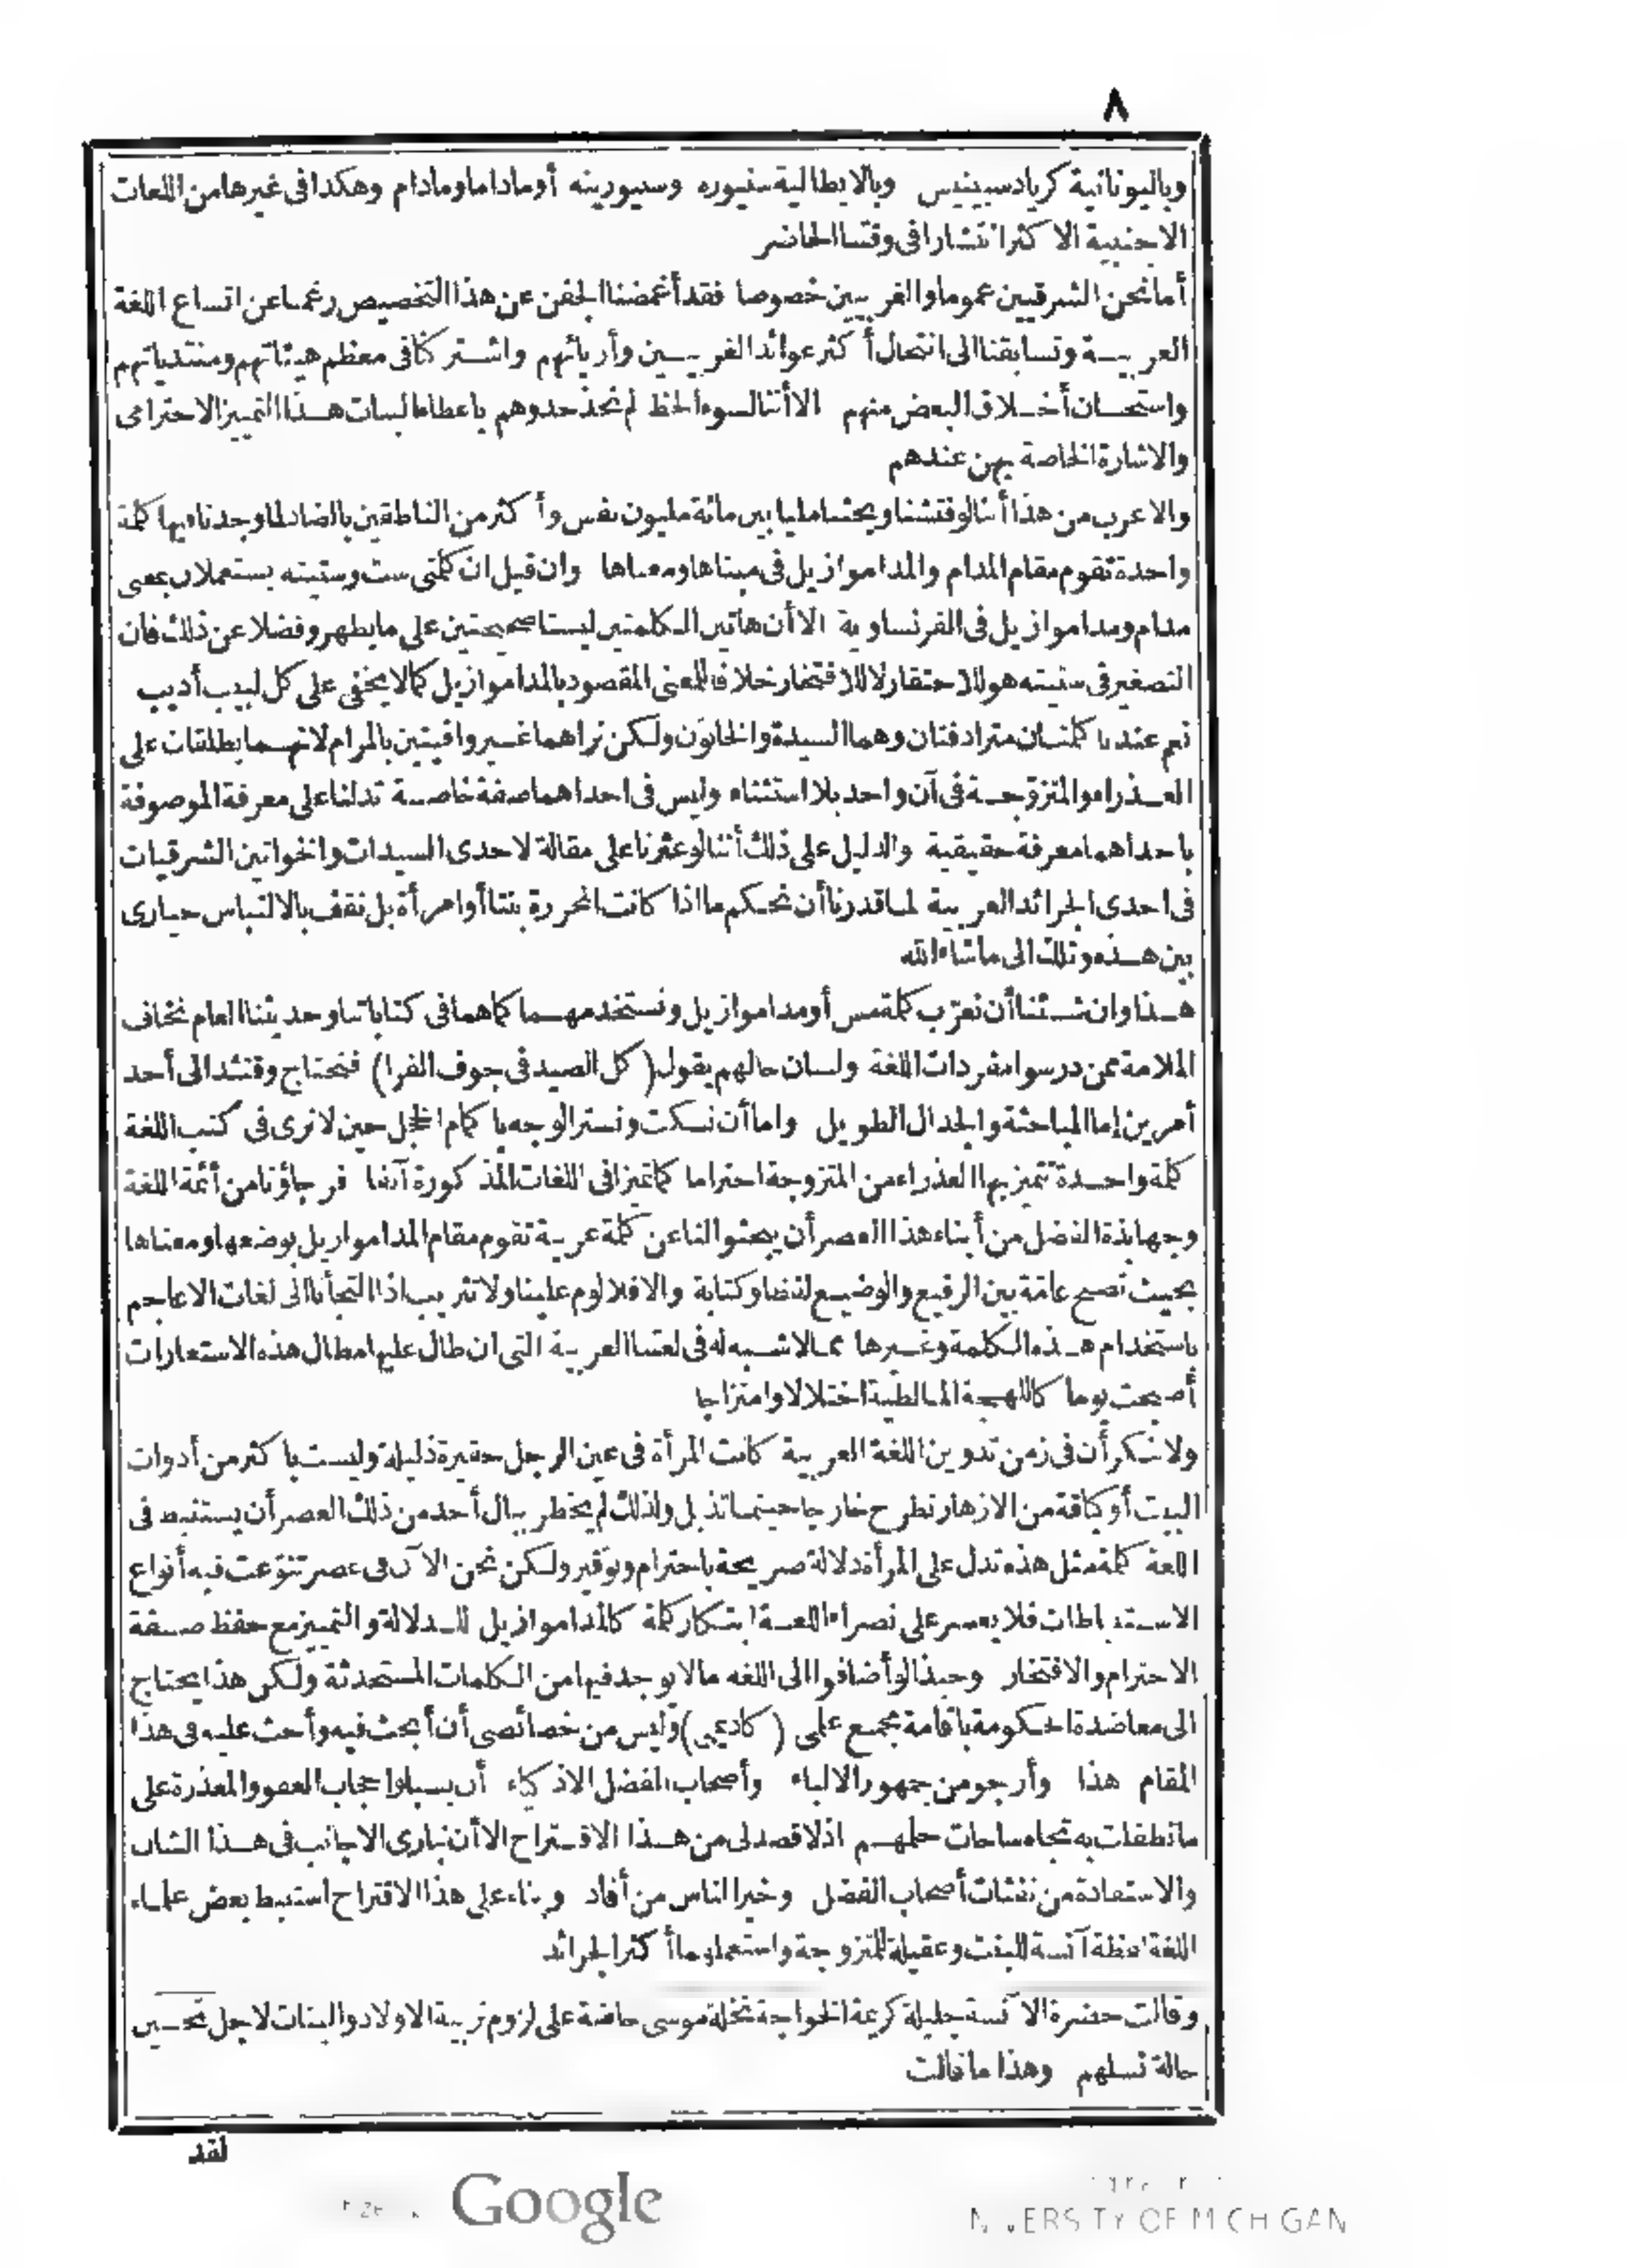 ٨
وباليونانية كرياد سبينيس وبالايطالية سنيوره وسنيورينه أو ماداما ومادام وهكذا فى غيرها من اللغات
الاجنبية الاكثر انتشارا فى وقتنا الحاضر
أما نحن الشرقيين عموما والغربيين خصوصا فقد أغمضنا الجفن عن هذا التخصيص رغما عن اتساع اللغة
العربية وتسابقنا الى انتحال أكثر عوائد الغربيين وأزيائهم واشتركنا فى معظم هيئاتهم ومنتدياتهم
واستحسان أخلاق البعض منهم الا أننا لسوء الحظ لم نحذ حذوهم باعطاء البنات هذا التمييز الاحترامى
والاشارة الخاصة بهن عندهم
والاغرب من هذا أننا لو فتشنا وبحثنا مليا بين مائة مليون نفس وأكثر من الناطقين بالضاد لما وجدنا فيها كلمة
واحدة تقوم مقام المدام والمداموازيل فى مبناها ومعناها وان قيل ان كلمتى ست وستيته يستعملان بمعنى
مدام ومداموازيل فى الفرنساوية الا أن هاتين الكلمتين ليستا صحيحتين على ما يظهر وفضلا عن ذلك فان
التصغير فى ستيته هو للاحتقار لا للافتخار خلافا للمعنى المقصود بالمداموازيل كما لا يخفى على كل لبيب أديب
نعم عندنا كلمتان مترادفتان وهما السيدة والخاتون ولكن نراهما غير وافيتين بالمرام لانهما يطلقات على
العذراء والمتزوجة فى آن واحد بلا استثناء وليس فى احداهما صفة خاصة تدلنا على معرفة الموصوفة
باحداهما معرفة حقيقية والدليل على ذلك أننا لو عثرنا على مقالة لاحدى السيدات والخواتين الشرقيات
فى احدى الجرائد العربية لما قدرنا أن نحكم ما اذا كانت المحررة بنتا أو امرأة بل نقف بالالتباس حيارى
بين هذه وتلك الى ما شاء الله
هذا وان شئنا أن نعرّب كلمة مس أو مداموازيل ونستخدمهما كما هما فى كتاباتنا وحديثنا العام نخاف
الملامة ممن درسوا مفردات اللغة ولسان حالهم يقول (كل الصيد فى جوف الفرا) فنحتاج وقتئذ الى أحد
أمرين إما المباحثة والجدال الطويل واما أن نسكت ونستر الوجه باكمام الخجل حين لا نرى فى كتب اللغة
كلمة واحدة تتميز بها العذراء من المتزوجة احتراما كما تميزا فى اللغات المذكورة آنفا فرجاؤنا من أئمة اللغة
وجهابذة الفضل من أبناء هذا العصر أن يبحثوا لنا عن كلمة عربية تقوم مقام المداموازيل بوضعها ومعناها
بحيث تصبح عامّة بين الرفيع والوضيع لفظا وكتابة والا فلا لوم علينا ولا تثريب اذا التجأنا الى لغات الاعاجم
باستخدام هذه الكلمة وغيرها مما لا شبيه له فى لغتنا العربية التى ان طال عليها مطال هذه الاستعارات
أصبحت يوما كاللهجة المالطية اختلالا وامتزاجا
ولا ننكر أن فى زمن تدوين اللغة العربية كانت المرأة فى عين الرجل حقيرة ذليلة وليست باكثر من أدوات
البيت أو كباقة من الازهار تطرح خارجا حينما تذبل ولذلك لم يخطر ببال أحد من ذلك العصر أن يستنبط فى
اللغة كلمة مثل هذه تدل على المرأة دلالة صريحة باحترام وتوقير ولكن نحن الآن فى عصر تنوّعت فيه أنواع
الاستنباطات فلا يعسر على نصراء اللغة ابتكار كلمة كالمداموازيل للدلالة والتمييز مع حفظ صفة
الاحترام والافتخار وحبذا لو أضافوا الى اللغه ما لا يوجد فيها من الكلمات المستحدثة ولكن هذا يحتاج
الى معاضدة الحكومة باقامة مجمع على (كاديمى) وليس من خصائصى أن أبحث فيه وأحث عليه فى هذا
المقام هذا وأرجو من جمهور الالباء وأصحاب الفضل الاذكياء أن يسبلوا حجاب العفو والمعذرة على
ما تطفلت به تجاه ساحات حلمهم اذ لا قصد لى من هذا الاقتراح الا أن نبارى الاجانب فى هذا الشان
والاستفادة من نفثات أصحاب الفضل وخير الناس من أفاد وبناء على هذا الاقتراح استنبط بعض علماء
اللغة لفظة آنسة للبنت وعقيلة للمتزوجة واستعملهما أكثر الجرائد
وقالت حضرة الآنسة جليلة كريمة الخواجة نخلة موسى حاضة على لزوم تربية الاولاد والبنات لاجل تحسين
حالة نسلهم وهذا ما قالت
لقد
Google
UNIVERSITY OF MICHIGAN